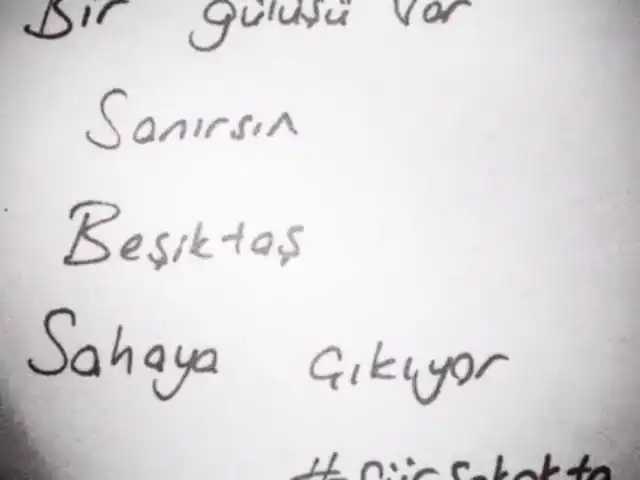 Bir gülüşü var
Sanırsın
Beşiktaş
Sahaya çıkıyor
#şiirsokakta